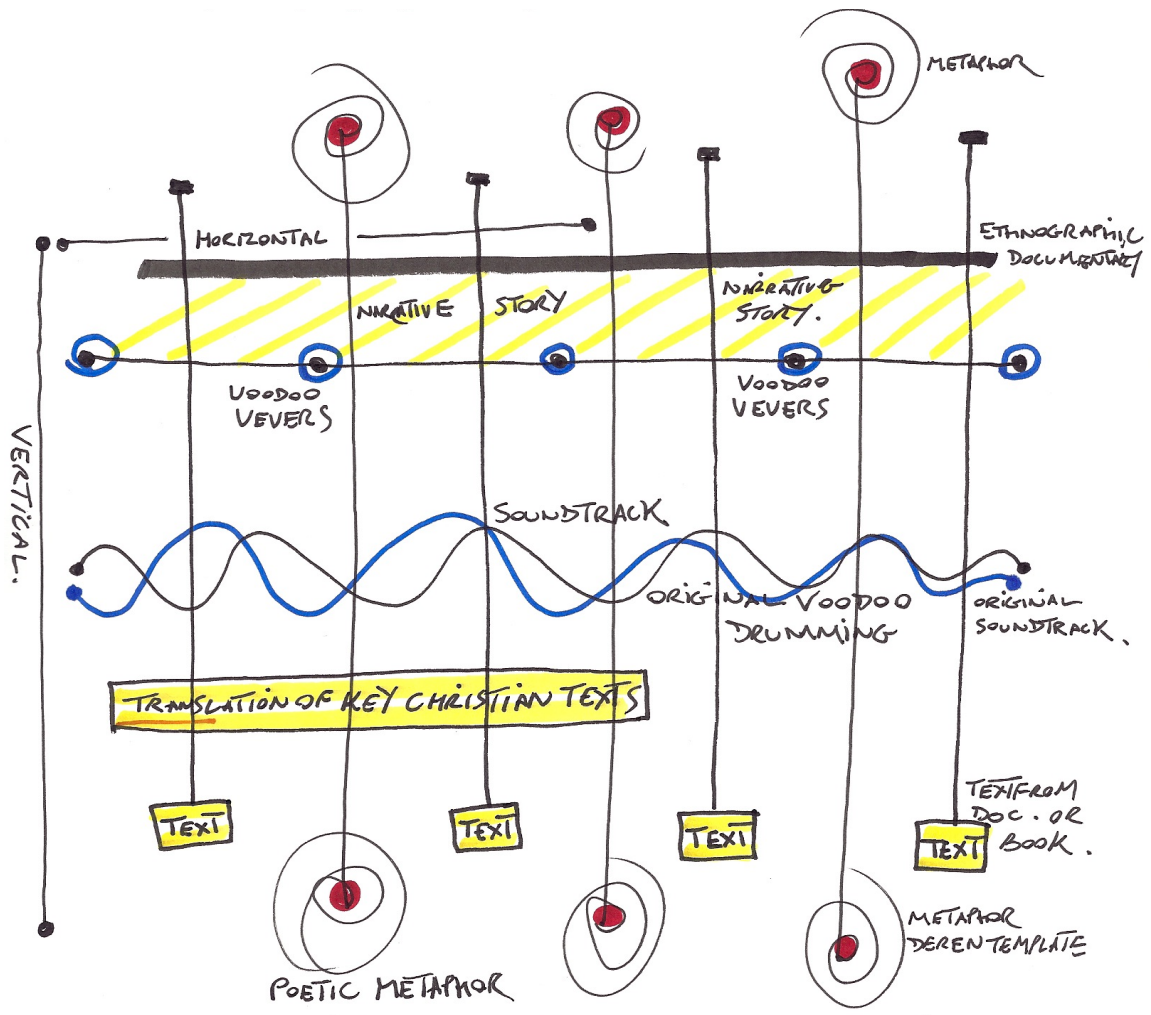 METAPHOR
HORIZONTAL
ETHNOGRAPHIC
DOCUMENTARY
NARRATIVE STORY
NARRATIVE
STORY.
VOODOO
VEVERS
VOODOO
VEVERS
VERTICAL.
SOUNDTRACK
ORIGINAL VOODOO
DRUMMING
ORIGINAL
SOUNDTRACK.
TRANSLATION OF KEY CHRISTIAN TEXTS
TEXT
TEXT
TEXT
TEXT
TEXT FROM
DOC. OR
BOOK.
METAPHOR
DEREN TEMPLATE
POETIC METAPHOR